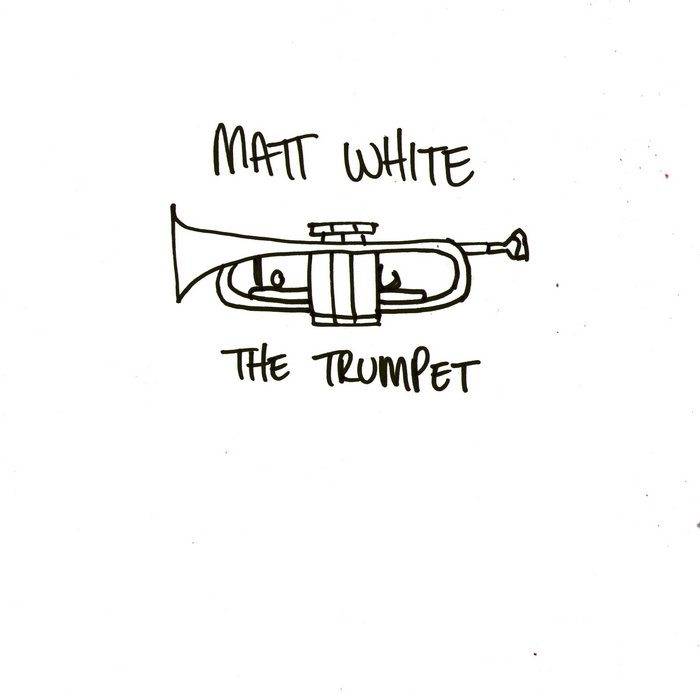 MATT WHITE
THE TRUMPET